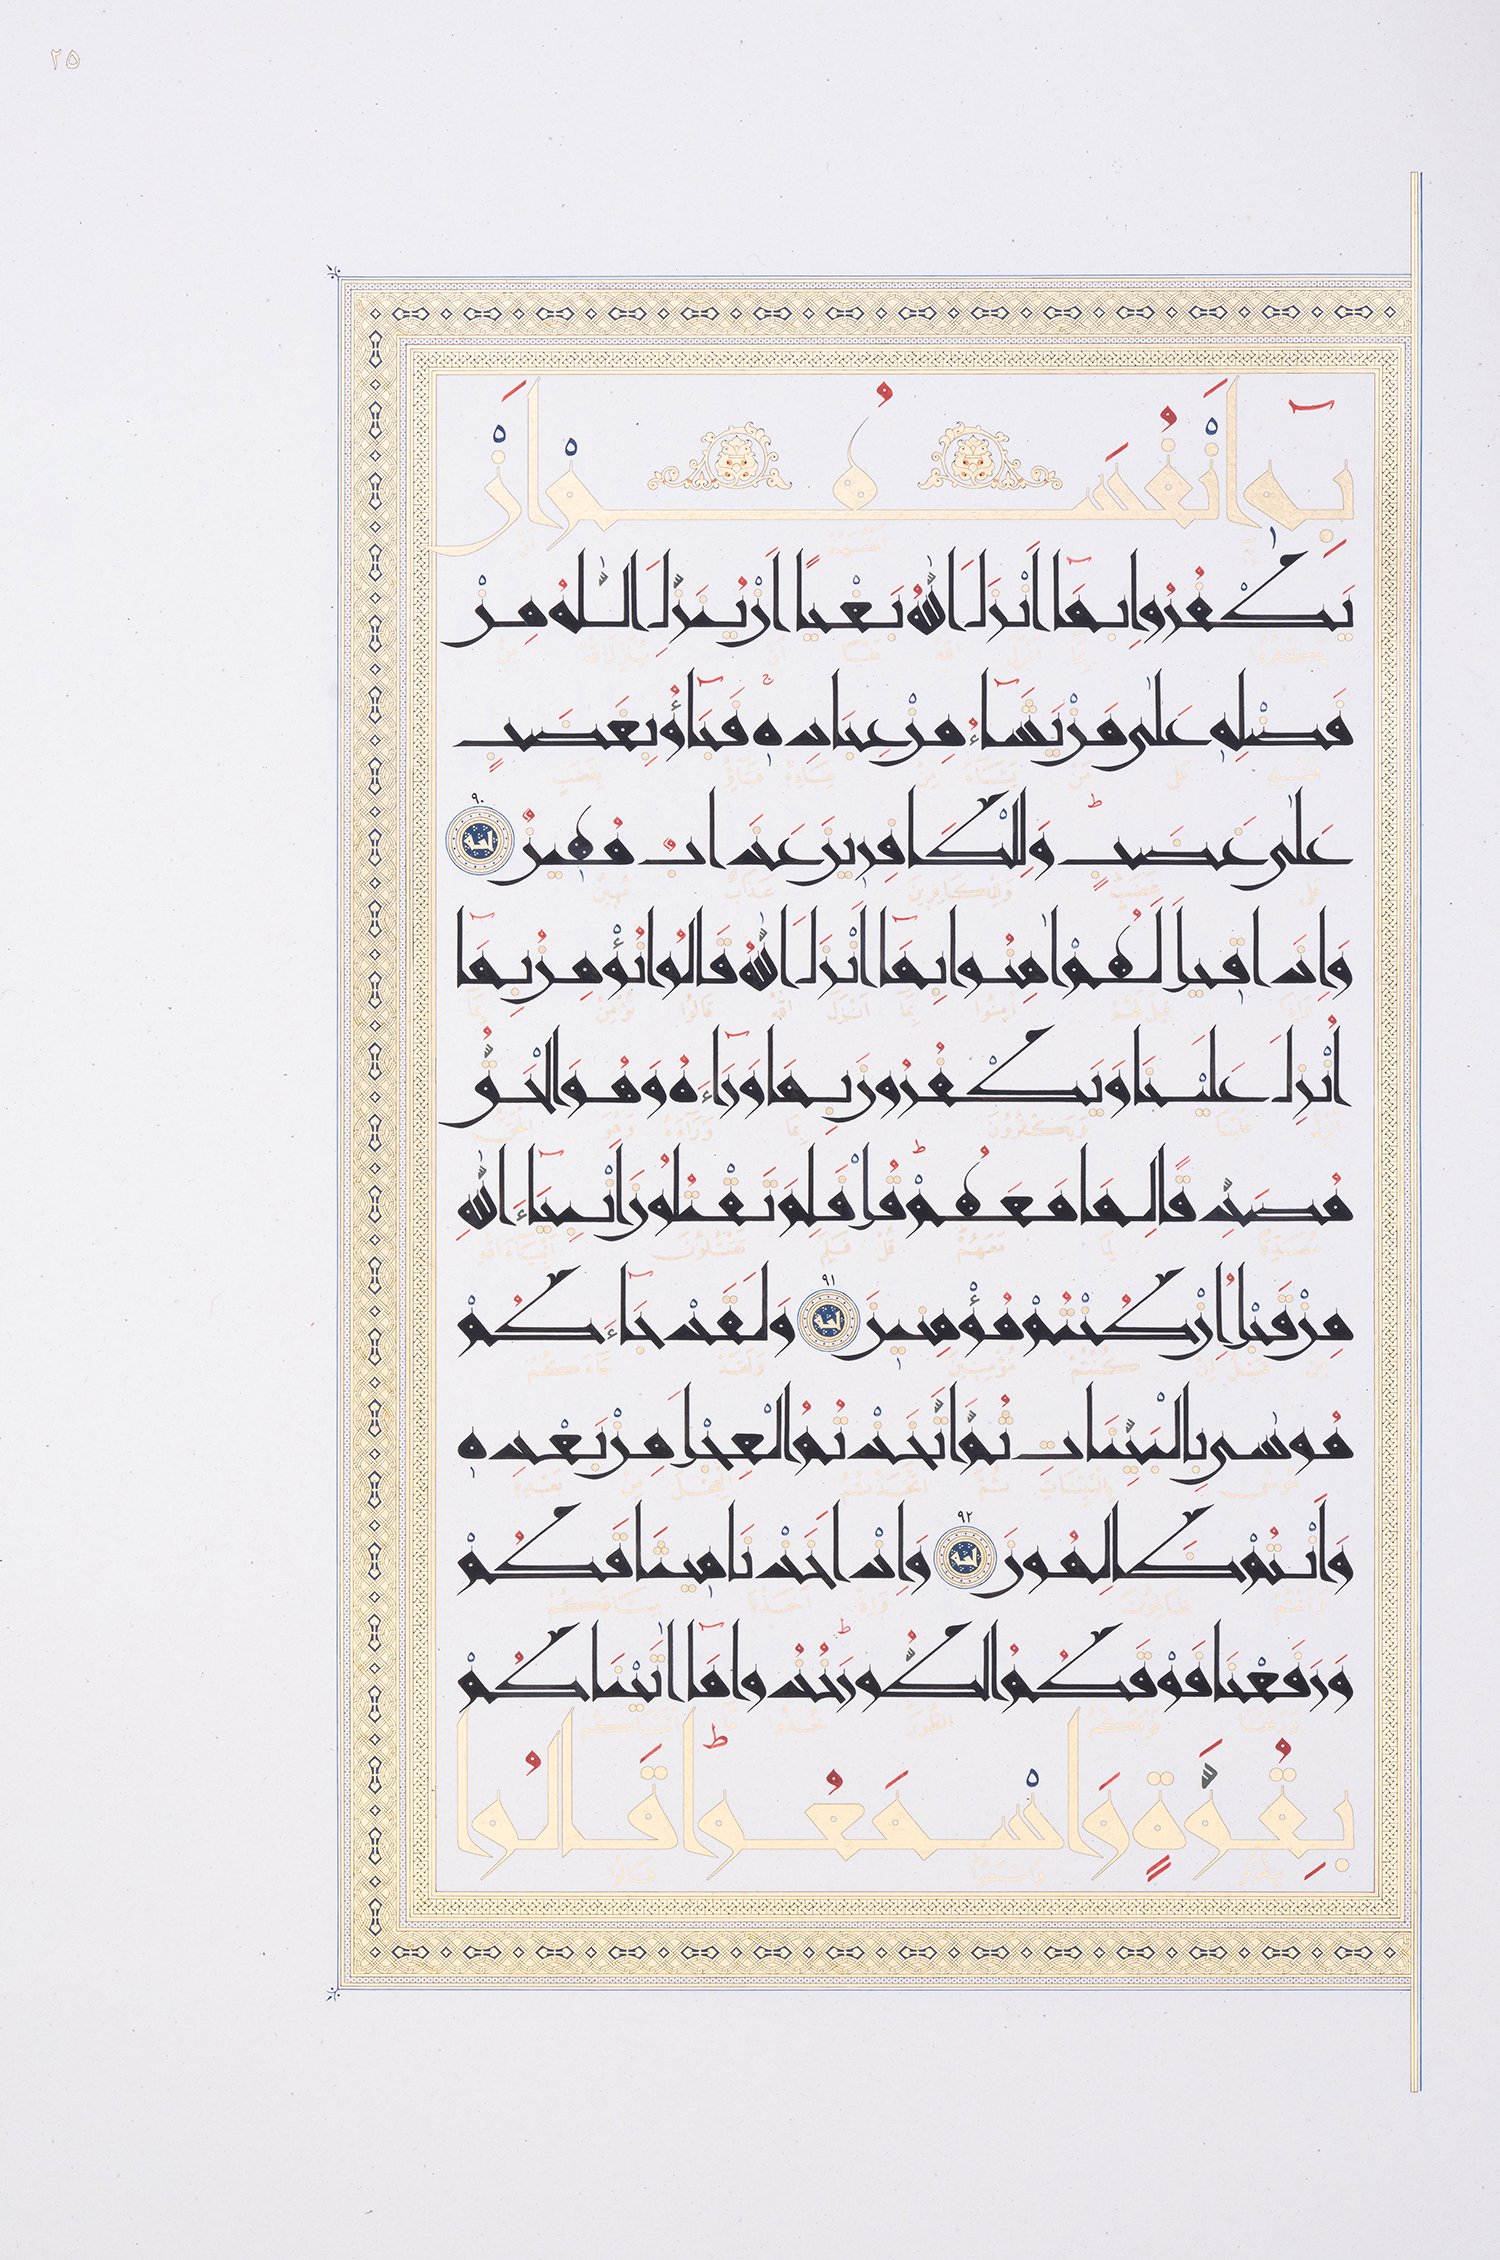 ٢٥
بِهٖٓ اَنْفُسَهُمْ اَنْ
يَكْفُرُوا بِمَٓا اَنْزَلَ اللّٰهُ بَغْيًا اَنْ يُنَزِّلَ اللّٰهُ مِنْ
فَضْلِهٖ عَلٰى مَنْ يَشَٓاءُ مِنْ عِبَادِهٖۚ فَبَٓاؤُ بِغَضَبٍ
عَلٰى غَضَبٍؕ وَلِلْكَافِرٖينَ عَذَابٌ مُهٖينٌ ٩٠
وَاِذَا قٖيلَ لَهُمْ اٰمِنُوا بِمَٓا اَنْزَلَ اللّٰهُ قَالُوا نُؤْمِنُ بِمَٓا
اُنْزِلَ عَلَيْنَا وَيَكْفُرُونَ بِمَا وَرَٓاءَهُ وَهُوَ الْحَقُّ
مُصَدِّقًا لِمَا مَعَهُمْؕ قُلْ فَلِمَ تَقْتُلُونَ اَنْبِيَٓاءَ اللّٰهِ
مِنْ قَبْلُ اِنْ كُنْتُمْ مُؤْمِنٖينَ ٩١ وَلَقَدْ جَٓاءَكُمْ
مُوسٰى بِالْبَيِّنَاتِ ثُمَّ اتَّخَذْتُمُ الْعِجْلَ مِنْ بَعْدِهٖ
وَاَنْتُمْ ظَالِمُونَ ٩٢ وَاِذْ اَخَذْنَا مٖيثَاقَكُمْ
وَرَفَعْنَا فَوْقَكُمُ الطُّورَؕ خُذُوا مَٓا اٰتَيْنَاكُمْ
بِقُوَّةٍ وَاسْمَعُواؕ قَالُوا